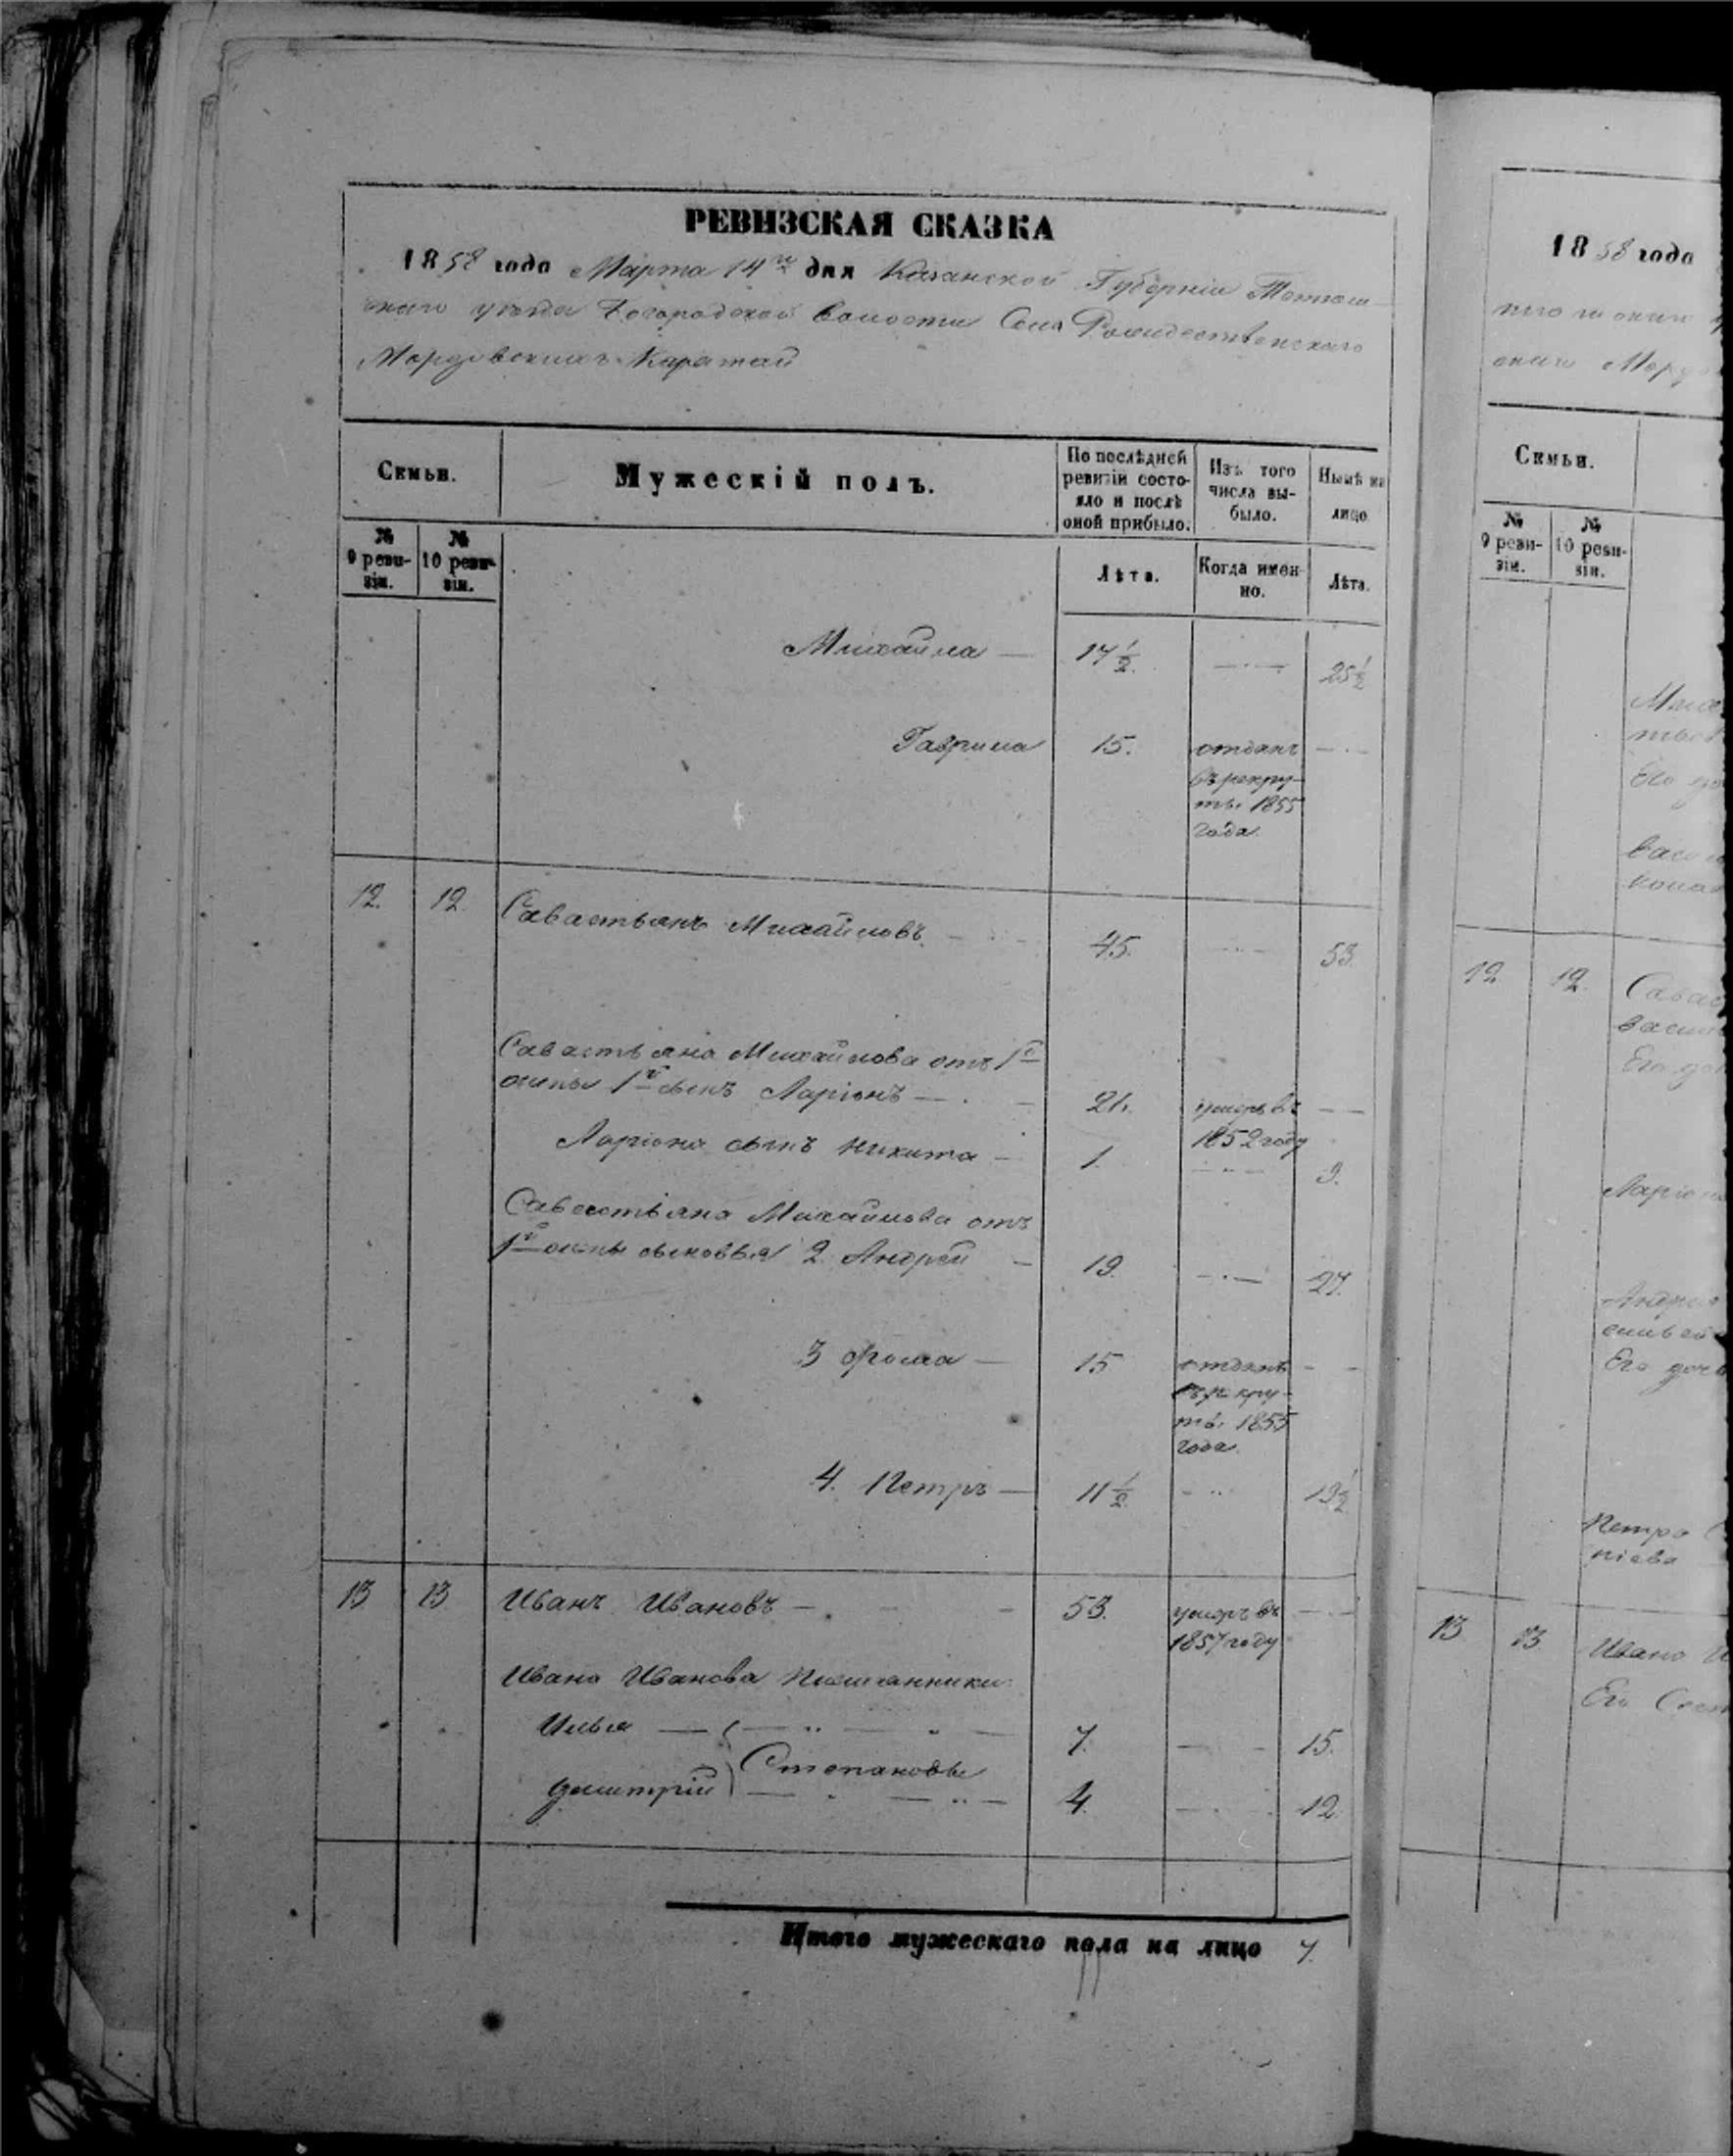 РЕВИЗСКАЯ СКАЗКА
1858 года Марта 14го дня Казанской Губерніи Тетюш-
скаго уезда Богородской волости Села Рождественскаго
Мордовскихъ Каратай
Семьи.
Мужескій полъ.
По послѣдней ревизіи состо-
яло и послѣ оной прибыло.
Изъ того числа вы-
было.
Нынѣ на лицо
№ 9 реви-
зіи.
№ 10 реви-
зіи.
Лѣта.
Когда имен-
но.
Лѣта.
Михайла — 17½ — 25½
Гаврила 15. отданъ —
въ рекру-
ты 1855
года.
12. 12. Савастьянъ Михайловъ — 45. — 53.
Савастьяна Михайлова отъ 1й
жены 1й сынъ Ларіонъ — 21. умеръ въ —
1852 году
Ларіона сынъ Никита — 1. — 9.
Савастьяна Михайлова отъ
1й жены сыновья 2. Андрей — 19. — 27.
3 Фома — 15 отданъ —
въ рекру-
ты 1855
года.
4. Петръ — 11½ — 19½
13 13 Иванъ Ивановъ — 53. умеръ въ —
1857 году
Ивана Иванова племянники
Илья — 7. — 15.
Степановы
Дмитрій — 4. — 12
Итого мужескаго пола на лицо 7.
1858 года
скаго Мордо
Семьи.
№ 9 реви-
зіи.
№ 10 реви-
зіи.
Его до
12 12. Савас
Его до
Ларіона
Андрея
Его дочь
Петра
13 13 Ивана И
Его